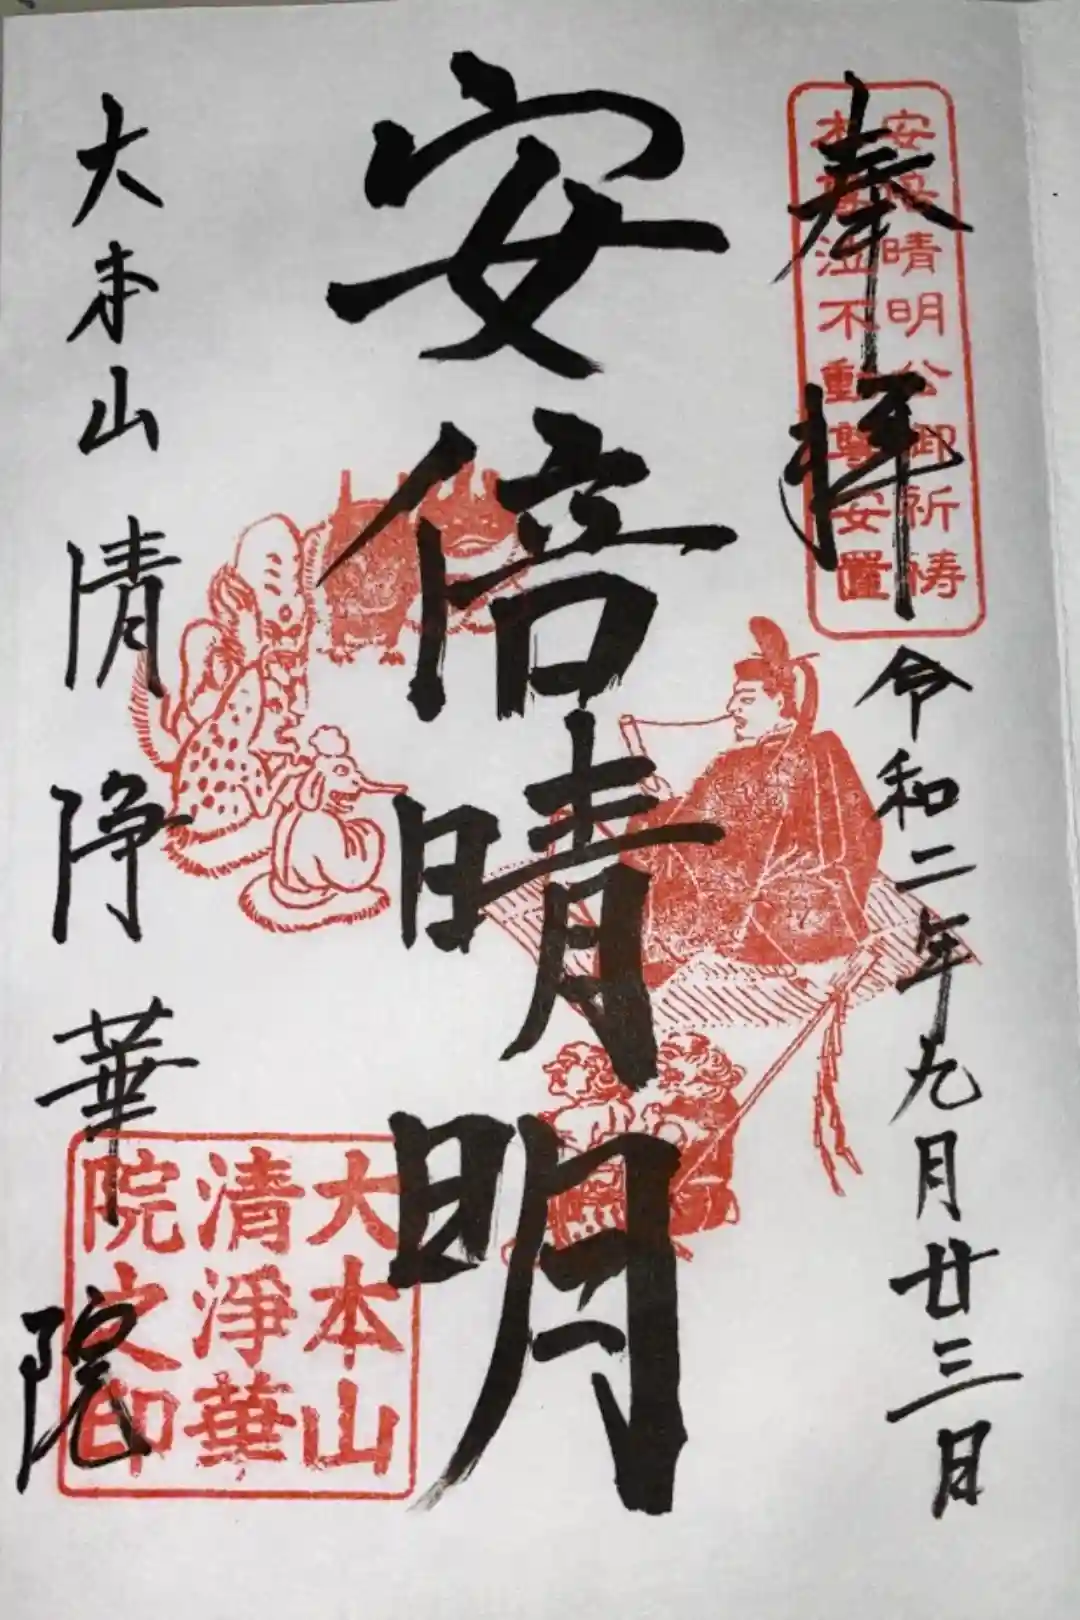 奉拝
令和二年九月廿三日
安倍晴明公御祈祷
本尊泣不動尊安置
安倍晴明
大本山 清浄華院
大本山
清淨華
院之印